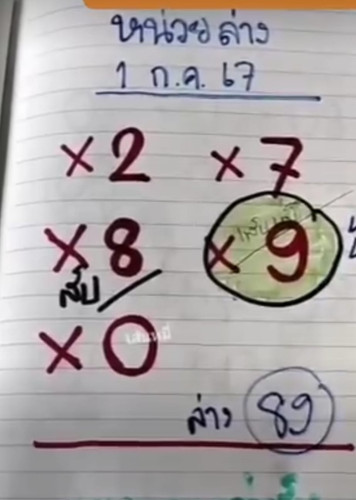 หน่วยล่าง
1 ก.ค. 67
×2 ×7
×8 ×9
สับ
×0
ล่าง 89